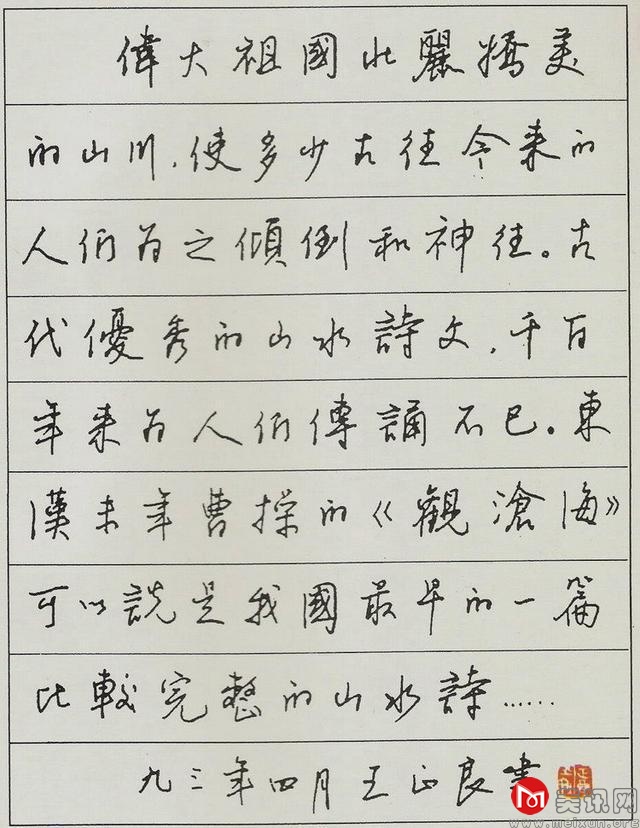 偉大祖國壯麗嬌美
的山川，使多少古往今来的
人们为之傾倒和神往。古
代優秀的山水詩文，千百
年来为人们傳誦不已。東
漢末年曹操的《觀滄海》
可以説是我國最早的一篇
比較完整的山水詩……
九三年四月王正良書
美讯网
www.meixun.org